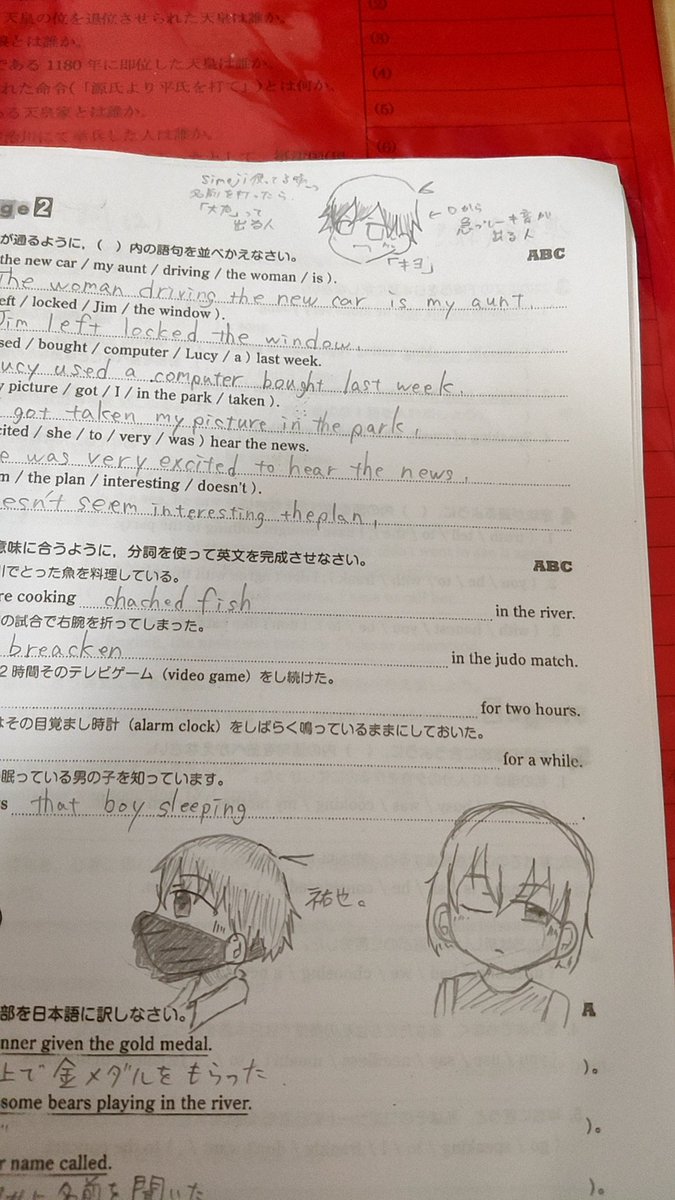 天皇の位を退位させられた天皇は誰か。
とは誰か。
である1180年に即位した天皇は誰か。
れた命令(「源氏より平氏を打て」)とは何か。
る天皇家とは誰か。
にて挙兵した人は誰か。
(3)
(4)
(5)
(6)
simeji使ってる時
名前を打ったら
って
出る人
←口から
急ブレーキ音が
出る人
「キヨ」
ge 2
が通るように，( ) 内の語句を並べかえなさい。
ABC
the new car / my aunt / driving / the woman / is ).
The woman driving the new car is my aunt.
eft / locked / Jim / the window ).
Jim left locked the window.
sed / bought / computer / Lucy / a ) last week.
ucy used a computer bought last week.
y picture / got / I / in the park / taken ).
got taken my picture in the park.
cited / she / to / very / was ) hear the news.
e was very excited to hear the news.
m / the plan / interesting / doesn't ).
esn't seem interesting the plan.
意味に合うように，分詞を使って英文を完成させなさい。
ABC
川でとった魚を料理している。
re cooking chached fish in the river.
の試合で右腕を折ってしまった。
breacken in the judo match.
2時間そのテレビゲーム（video game）をし続けた。
for two hours.
はその目覚まし時計（alarm clock）をしばらく鳴っているままにしておいた。
for a while.
眠っている男の子を知っています。
s that boy sleeping .
祐也。
部を日本語に訳しなさい。
A
nner given the gold medal.
上で金メダルをもらった )。
some bears playing in the river.
〃 )。
r name called.
名前を聞いた )。